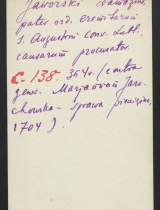 Jaworski
pater ord. Eremitarum
s. Augustini conv. Lubl.
causarum procurator.
C. 138. 364v. (contra
gener. Marjannam Jaro-
chowska - sprawa pieniężna,
1704).